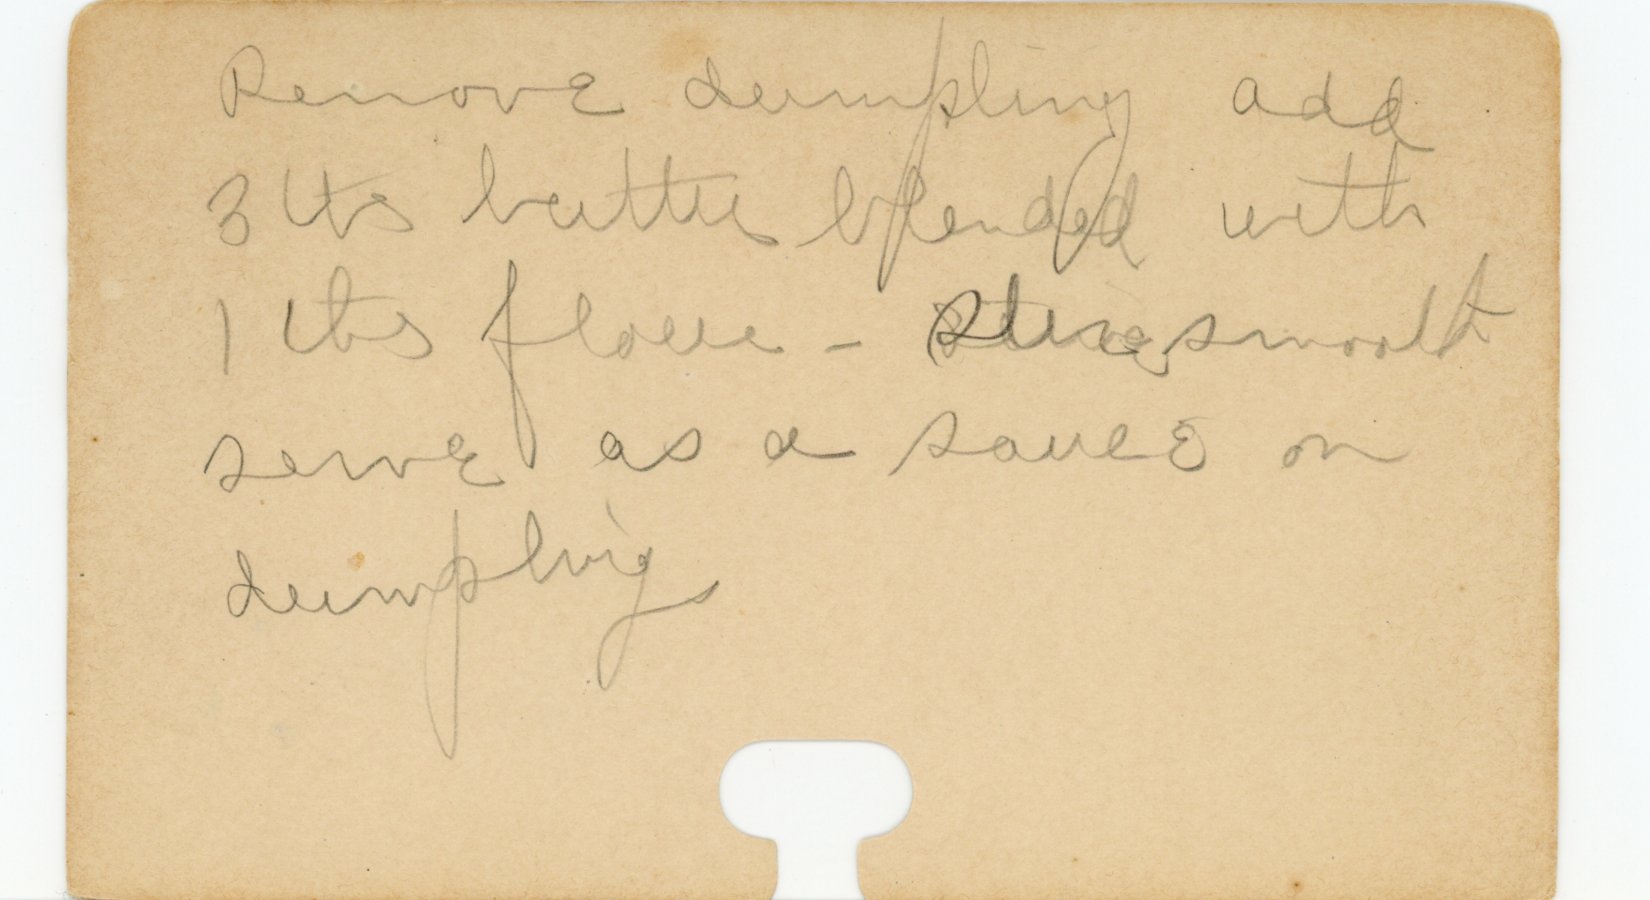 Remove dumpling add
3 tbs butter blended with
1 tbs flour - smooth
serve as a sauce on
dumplings